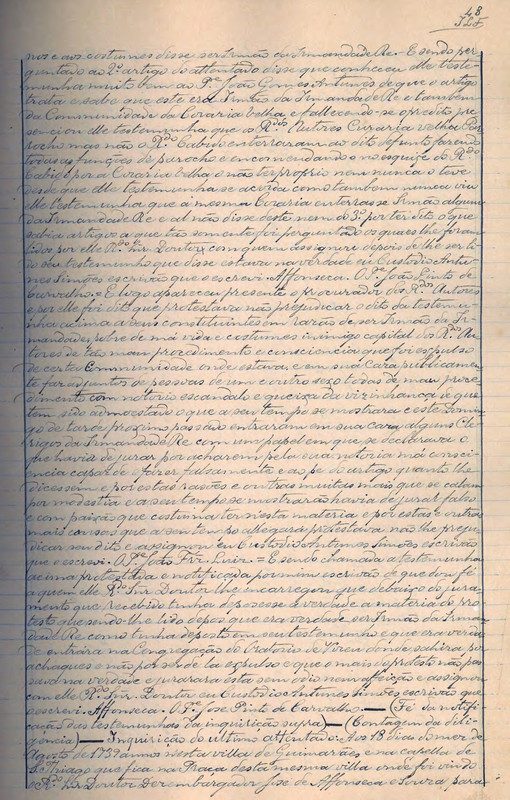 48
nos e aos costumes disse ser Irmão da Irmandade Re.- E sendo per
guntado ao 2º artigo do attentado disse que conheceu elle teste-
munha muito bem ao Pe. João Gomes Antunes de que o artigo
trata e sabe que este era Irmão da Irmandade Re e tambem
da Communidade da Coraria velha e fallecendo-se o predito pre
senciou elle testemunha que os Rdos Autores Coraria velha Par
rocho mas não o Rdo Cabido enterraram ao dito defunto fazendo
todas as funções de parocho e encomendando o no esquife do Rdo
Cabido por a Coraria velha o não ter proprio nem nunca o teve
desde que elle testemunha se acorda como tambem nunca viu
elle testemunha que a mesma Coraria enterrasse Irmão algum
da Irmandade Re e al não disse deste nem do 3º por ter dito o que
sabia artigos a que tão somente foi perguntado os quaes lhe foram
lidos por elle Rdo Snr. Doutor com quem assignou depois de lhe ser li-
do seu testemunho que disse estava na verdade eu Custodio Antu-
nes Simões escrivão que o escrevi. Affonseca. O Pe. João Pinto de
Carvalho. = E logo appareceu presente o procurador dos Rdos Autores
e por elle foi dito que protestava não prejudicar o dito da testemu-
nha acima a seus constituintes em razão de ser Irmão da Ir-
mandade, ser de má vida e costumes inimigo capital dos Rdos Au-
tores de tão mau procedimento e consciencia que foi expulso
de certa Communidade onde estava e em sua casa publicamen-
te faz ajuntos de pessoas de um e outro sexo todas de mau proce-
dimento com notorio escandalo e queixa da visinhança de que
tem sido admoestado o que a seu tempo se mostrará e este Domin-
go de tarde proximo passado entraram em sua casa alguns Cle-
rigos da Irmandade Re com um papel em que se declarava o
que havia de jurar por acharem pela sua notoria má consci-
encia capaz de o fazer falsamente e ao pé do artigo quanto lhe
dicessem e por estas rasões e outras muitas mais que se calam
por modestia e a seu tempo se mostrarão havia de jurar falso
e com paixão que costuma ter nesta materia e por estas e outras
mais cousas que a seu tempo allegará protestava não lhe preju-
dicar seu dito e assignou eu Custodio Antunes Simões escrivão
que o escrevi. O Pe. João Frz. Luiz. = E sendo chamada a testemunha
acima protestada e notificada por mim escrivão de que dou fé
a quem elle Rdo Snr. Doutor lhe encarregou que debaixo do jura-
mento que recebido tinha depozesse a verdade a materia do pro-
testo que sendo-lhe lido depos que era verdade ser Irmão da Irman-
dade Re como tinha deposto em seu testemunho e que era verda-
de entrára na Congregação do Oratorio de Vizeu donde sahira por
achaques e não por ser de lá expulso e que o mais do protesto não pas
sava na verdade e jurára esta sem odio nem affeição e assignou
com elle Rdo Snr. Doutor eu Custodio Antunes Simões escrivão que
o escrevi. Affonseca. O Pe. José Pinto de Carvalho — (Fé da notifi-
cação das testemunhas da inquirição supra) — (Contagem da dili-
gencia) — Inquirição do ultimo attentado. Aos 18 dias do mez de
Agosto de 1739 annos nesta villa de Guimarães e na capella de
S. Thiago que fica na Praça desta mesma villa onde foi vindo
o Rdo Snr. Doutor Dezembargador José de Affonseca e Souza para